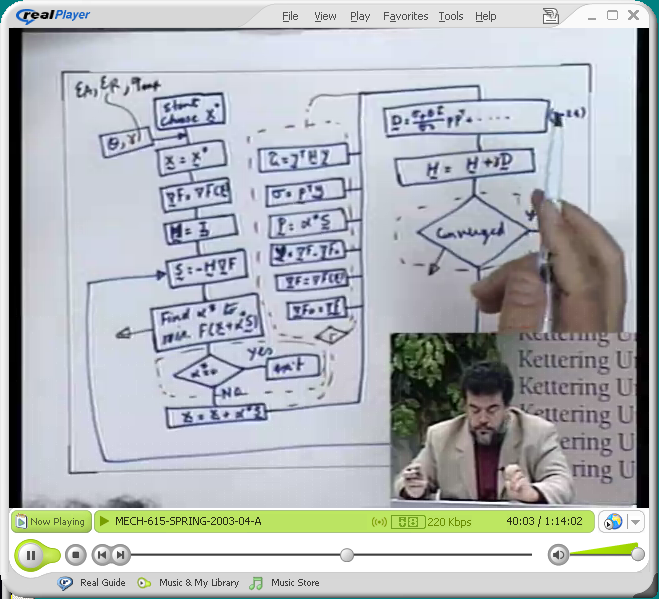 realPlayer
File View Play Favorites Tools Help
εA, εR, qmax
Start
choose x⁰
θ, γ
x = x⁰
∇F = ∇F(x)
H = I
S = -H∇F
Find α* to
min F(x+αS)
yes
exit
No
x = x + α*S
τ = yᵀHy
σ = pᵀy
p = α*S
y = ∇F - ∇F₀
∇F = ∇F(x)
∇F₀ = ∇F
H = H + γD
Converged
Kettering Un
Kettering Un
Kettering U
ettering U
ttering U
ering U
Now Playing
MECH-615-SPRING-2003-04-A
220 Kbps
40:03 / 1:14:02
Real Guide
Music & My Library
Music Store